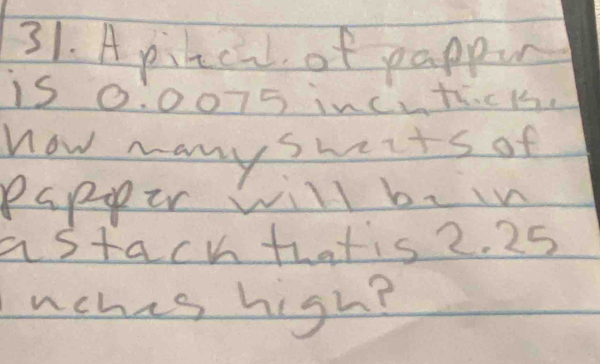 31. A piece. of papper
is 0.0075 inch thick.
how many sheets of
papper will be in
a stack that is 2.25
inches high?